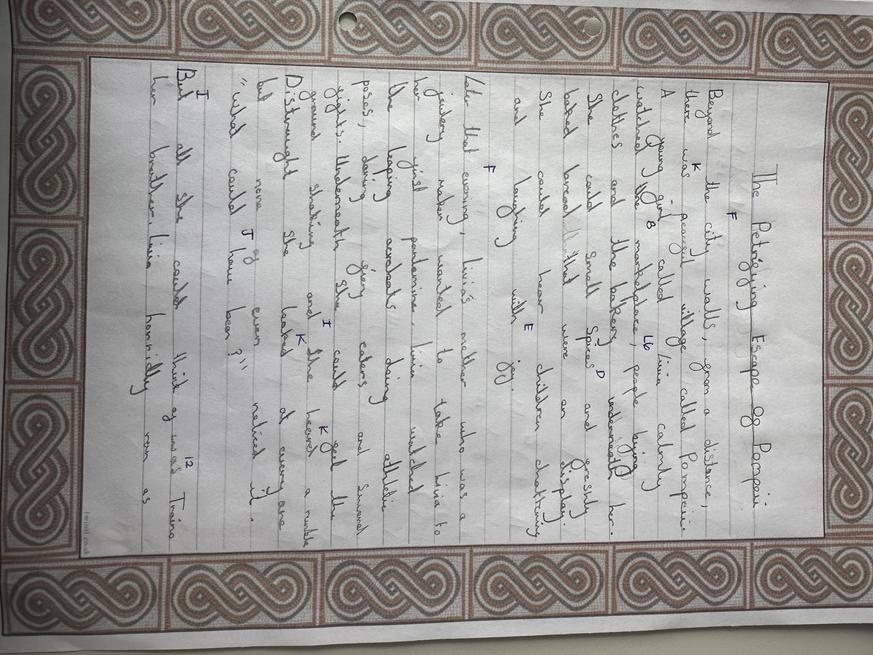 The Petrifying Escape of Pompeii
F
Beyond the city walls, from a distance,
K
there was peaceful village called Pompeii.
A young girl called Livia calmly
B
watched the marketplace, people bying
clothes and the bakery underneath her.
She could smell spices and freshly
baked bread that were on display.
She could hear children chattering
and laughing with joy.
Later that evening, Livia's mother who was a
jewlery maker wanted to take Livia to
her first pantomine, Livia watched
the leaping acrobats doing athletic
poses, daring firey eaters and
fights. Underneath she could feel the
ground shaking and the heard a rumble
Distraught she looked at everyone
but none of even noticed it.
"what could have been?"
But all she could think of was Traino
her brother. Livia horridly ran as